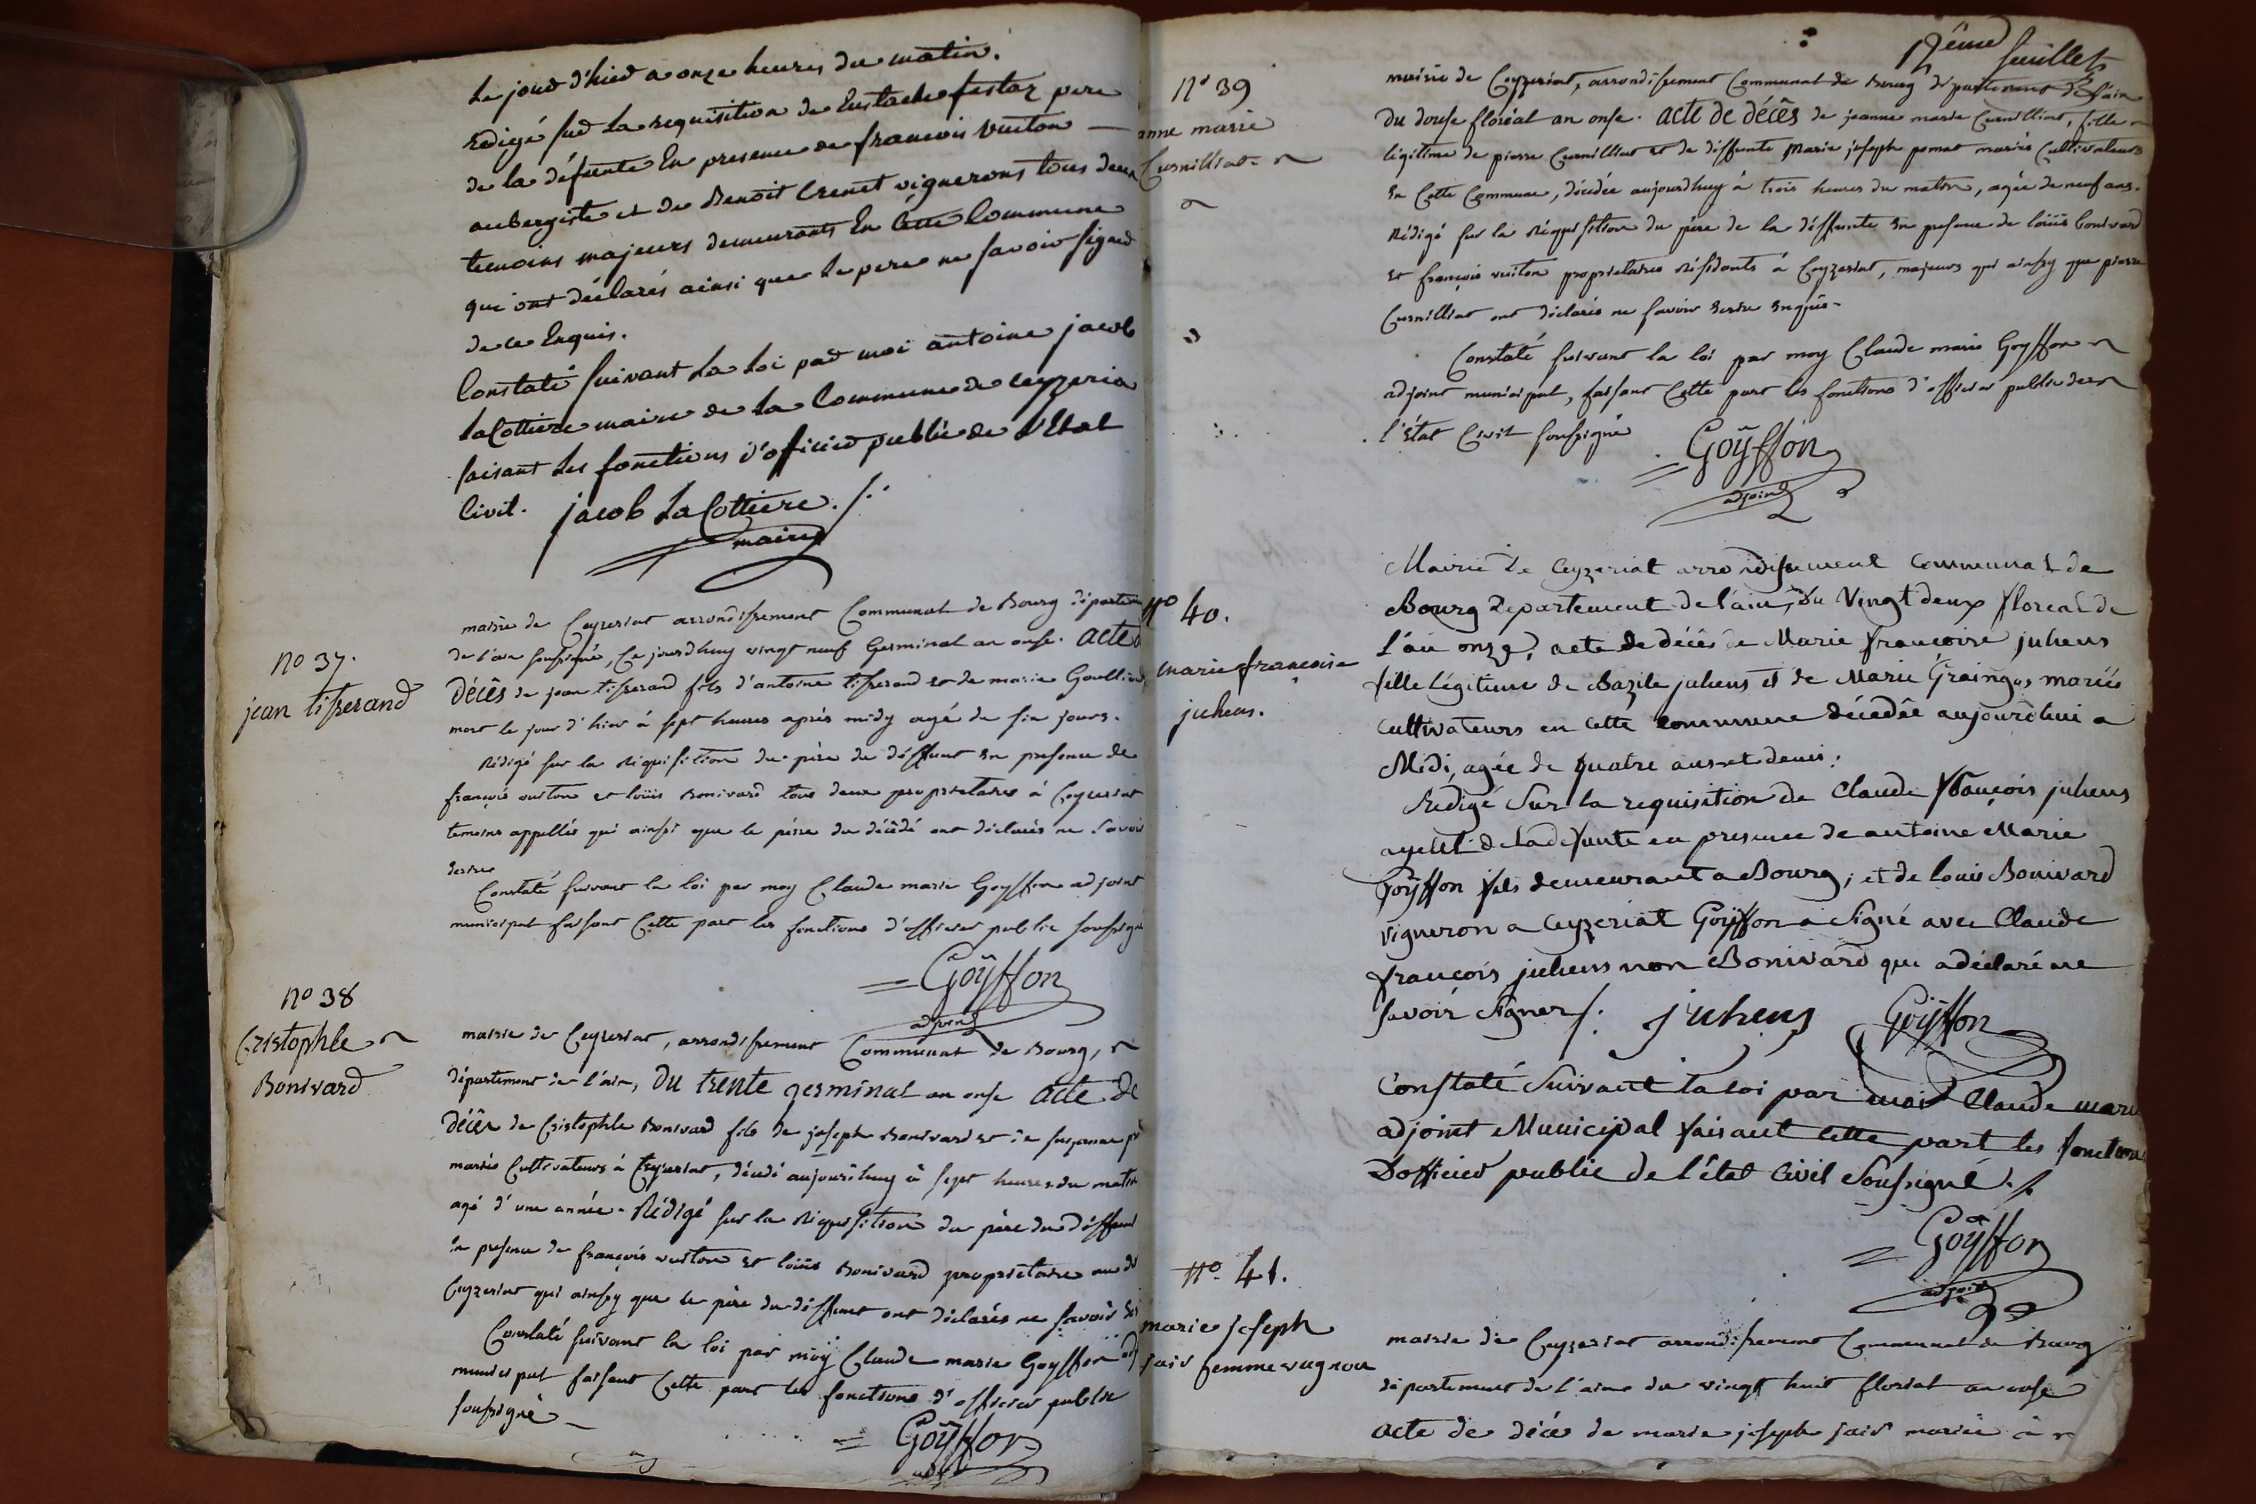 Le jour d'hier a onze heures du matin.
Rédigé sur La requisition de Eustache festaz pere
de la défunte En presence de francois vuiton —
aubergiste et de Benoit Crenet vignerons tous deux
temoins majeurs demeurants En Cette Commune
qui ont déclarés ainsi que Le pere ne savoir signer
de ce Enquis.
Constaté suivant La Loi par moi antoine jacob
LaCottiere maire de La Commune de ceyzeria
faisant Les fonctions d'officier public de L'Etat
Civil. jacob LaCottiere
maire
no 37.
jean tisserand
mairie de Ceyzeriat arrondissement Communal de Bourg départem
de l'ain soussigné, Ce jourdhuy vingt neuf Germinal an onse. acte d
décès de jean tisserand fils d'antoine tisserand et de marie
mort le jour d'hier à sept heures après midy agé de six jours.
Rédigé sur la Réquisition du père du déffunt En presence de
françois vuiton et loüis Bonivard tous deux proprietaires à Ceyzeriat
temoins appellés qui ainsi que le père du décédé ont déclarés ne Savoir
Ecrire
Constaté suivant la loi par moy Claude marie Goyffon adjoint
municipal faisant Cette part les fonctions d'officier public soussigné
Goÿffon
adjoint
no 38
Cristophle
Bonivard
mairie de Ceyzeriat, arrondissement Communal de Bourg,
département de l'ain, Du trente germinal an onse acte de
décès de Cristophle Bonivard fils de joseph Bonivard et de suzanne
mariés Cultivateurs à Ceyzeriat, décédé aujourdhuy à sept heures du matin
agé d'une année. Rédigé sur la Réquisition du père du déffunt
En presence de françois vuiton et loüis Bonivard proprietaire au dt
Ceyzeriat qui ainsy que le père du déffunt ont déclarés ne savoir
Constaté suivant la loi par moÿ Claude marie Goyffon adj
municipal faisant Cette part les fonctions d'officier public
soussigné
Goÿffon
17ème feuillet
no 39
anne marie
Curnilliat
mairie de Ceyzeriat, arrondissement Communal de Bourg département de l'ain
du douse floréal an onse. acte de décès de jeanne marie Curnilliat, fille
légitime de pierre Curnilliat et de deffunte Marie joseph pomat mariés Cultivateurs
En Cette Commune, décédée aujourdhuy à trois heures du matin, agée de neuf ans.
Rédigé sur la Réquisition du père de la déffunte En presence de loüis bonivard
et françois vuiton proprietaires Résidants à Ceyzeriat, majeurs qui ainsy que pierre
Curnilliat ont déclarés ne savoir Ecrire Enquis-
Constaté suivant la loi par moy Claude marie Goyffon
adjoint municipal, faisant Cette part les fonctions d'officier public de
l'état Civil soussigné
Goÿffon
adjoint
No 40.
marie françoise
juhens.
Mairie de Ceyzeriat arrondissement communal de
Bourg Departement de l'ain, du Vingt deux floreal de
l'an onze, acte de décès de Marie françoise juhens
fille légitime de Bazile juhens et de Marie mariés
cultivateurs en cette commune décédée aujourd'hui a
Midi, agée de quatre ans et demi.
Redigé Sur la requisition de Claude françois juhens
de la defunte en presence de antoine Marie
Goÿffon fils demeurant a Bourg, et de louis Bonivard
vigneron a ceyzeriat Goÿffon a Signé avec Claude
françois juhens non Bonivard qui a déclaré ne
savoir signer juhens Goÿffon
Constaté Suivant la loi par moi Claude marie
adjoint Municipal faisant cette part les fonctions
Dofficier public de l'état Civil Soussigné.
Goÿffon
adjoint
No. 41.
marie joseph
femme vugnon
mairie de Ceyzeriat arrondissement Communal de Bourg
département de l'ain du vingt huit floréal an onse
acte de décès de marie joseph mariée à